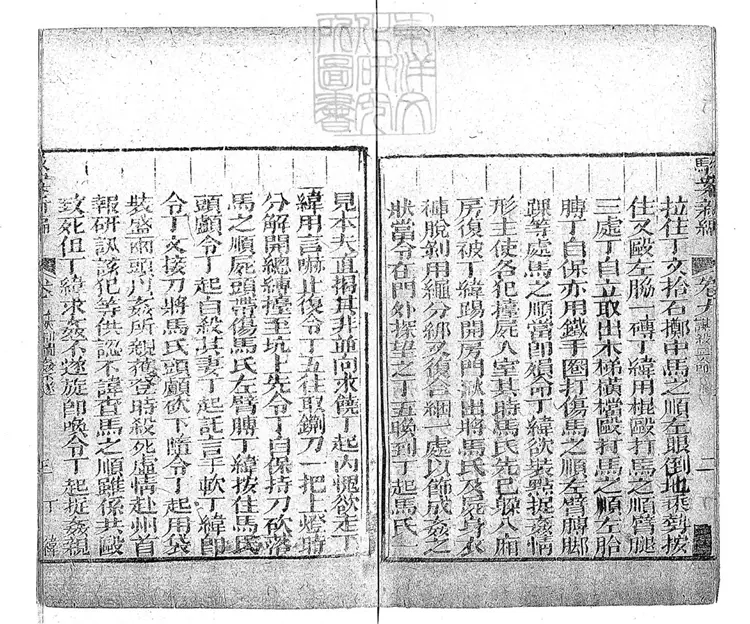 東洋文
化研究
所圖書
駁案新編
卷九
二
拉住丁文拾石擲中馬之順左眼倒地乘勢按
住文毆左脇一磚丁緯用棍毆打馬之順臂腿
三處丁自立取出木梯橫檔毆打馬之順左胎
膊丁自保亦用鐵手圈打傷馬之順左臂膊脚
踝等處馬之順當卽殞命丁緯欲裝點捉姦情
形主使各犯擡屍入室其時馬氏先已躱入廂
房復被丁緯踢開房門揪出將馬氏及屍身衣
褲脫剝用繩分綁又復合綑一處以飾成姦之
狀當令在門外探望之丁五喚到丁起馬氏一
見本夫直揭其非並向求饒丁起內愧欲走丁
緯用言嚇止復令丁五往取鍘刀一把上燈時
分解開總縛擡至炕上先令丁自保持刀砍落
馬之順屍頭帶傷馬氏左臂膊丁緯按住馬氏
頭顱令丁起自殺其妻丁起託言手軟丁緯卽
令丁文接刀將馬氏頭顱砍下隨令丁起用袋
裝盛兩頭以姦所親獲登時殺死虛情赴州首
報研訊該犯等供認不諱查馬之順雖係共毆
致死但丁緯求姦不遂旋卽喚令丁起捉姦親